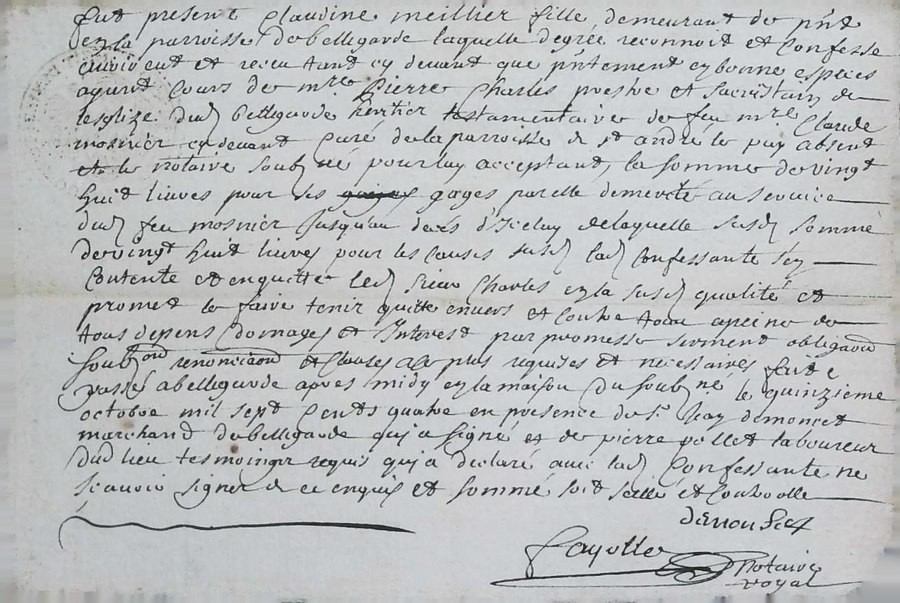 fut present Claudine meillier fille demeurant de pñt
en la parroisse de bellegarde laquelle degrée reconnoit et Confesse
avoir eut et receu tant cy devant que pñtement en bonne espèces
ayant Cours de mre pierre Charles prestre et sacristain de
lesglize dud bellegarde heritier testamentaire de feu mre Claude
mosnier cy devant Curé de la parroisse de st andré le puy absent
et le notaire soubne pour luy acceptant, la somme de vingt
huit livres pour ses gages par elle demerité au service
dud feu mosnier Jusqu'au decés d'Iceluy de laquelle susd somme
de vingt huit livres pour les Causes susd lad Confessante s'en
Contente et en quitte led sieur Charles en la susd qualité et
promet le faire tenir quitte envers et contre tous a peine de
tous depens domages et Interest par promesse serment obligaon
soubmon renonciaon et Clauses plus requises et necessaires fait e
passé a bellegarde apres midy en la maison du soubne le quinzieme
octobre mil sept Cents quatre en presence de sr Jean demoncet
marchand de bellegarde qui a signé et de pierre pollet laboureur
dud lieu tesmoings requis qui a declaré avec lad Confessante ne
sçavoir signer de ce enquis et sommé soit seellé et Controolle
Fayolle notaire
royal